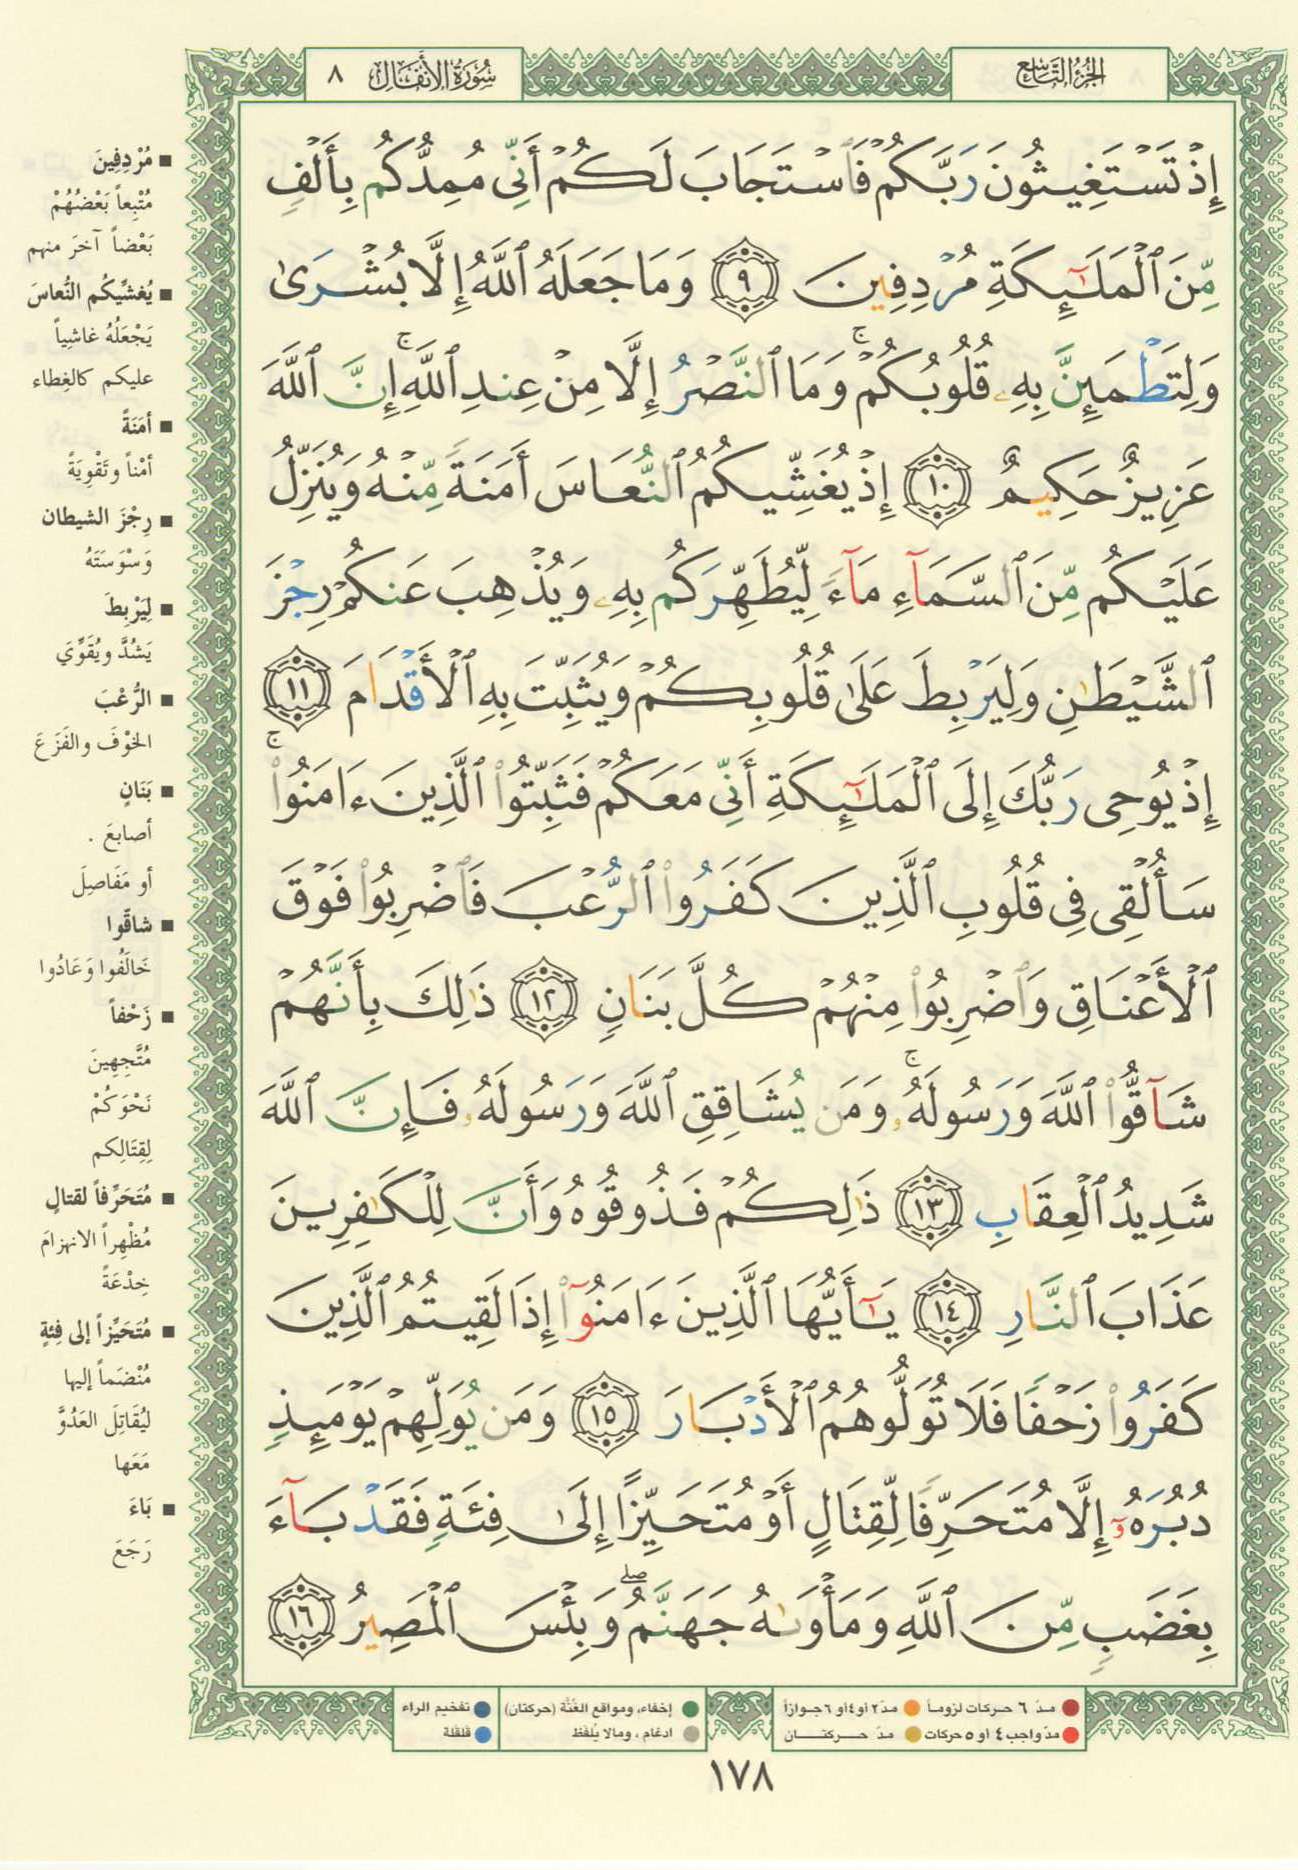 الجزء التاسع
سورة الأنفال ٨
إِذْ تَسْتَغِيثُونَ رَبَّكُمْ فَٱسْتَجَابَ لَكُمْ أَنِّي مُمِدُّكُم بِأَلْفٍ
مِّنَ ٱلْمَلَٰٓئِكَةِ مُرْدِفِينَ ٩ وَمَا جَعَلَهُ ٱللَّهُ إِلَّا بُشْرَىٰ
وَلِتَطْمَئِنَّ بِهِۦ قُلُوبُكُمْ ۚ وَمَا ٱلنَّصْرُ إِلَّا مِنْ عِندِ ٱللَّهِ ۚ إِنَّ ٱللَّهَ
عَزِيزٌ حَكِيمٌ ١٠ إِذْ يُغَشِّيكُمُ ٱلنُّعَاسَ أَمَنَةً مِّنْهُ وَيُنَزِّلُ
عَلَيْكُم مِّنَ ٱلسَّمَآءِ مَآءً لِّيُطَهِّرَكُم بِهِۦ وَيُذْهِبَ عَنكُمْ رِجْزَ
ٱلشَّيْطَٰنِ وَلِيَرْبِطَ عَلَىٰ قُلُوبِكُمْ وَيُثَبِّتَ بِهِ ٱلْأَقْدَامَ ١١
إِذْ يُوحِى رَبُّكَ إِلَى ٱلْمَلَٰٓئِكَةِ أَنِّي مَعَكُمْ فَثَبِّتُوا۟ ٱلَّذِينَ ءَامَنُوا۟ ۚ
سَأُلْقِى فِى قُلُوبِ ٱلَّذِينَ كَفَرُوا۟ ٱلرُّعْبَ فَٱضْرِبُوا۟ فَوْقَ
ٱلْأَعْنَاقِ وَٱضْرِبُوا۟ مِنْهُمْ كُلَّ بَنَانٍ ١٢ ذَٰلِكَ بِأَنَّهُمْ
شَآقُّوا۟ ٱللَّهَ وَرَسُولَهُۥ ۚ وَمَن يُشَاقِقِ ٱللَّهَ وَرَسُولَهُۥ فَإِنَّ ٱللَّهَ
شَدِيدُ ٱلْعِقَابِ ١٣ ذَٰلِكُمْ فَذُوقُوهُ وَأَنَّ لِلْكَٰفِرِينَ
عَذَابَ ٱلنَّارِ ١٤ يَٰٓأَيُّهَا ٱلَّذِينَ ءَامَنُوٓا۟ إِذَا لَقِيتُمُ ٱلَّذِينَ
كَفَرُوا۟ زَحْفًا فَلَا تُوَلُّوهُمُ ٱلْأَدْبَارَ ١٥ وَمَن يُوَلِّهِمْ يَوْمَئِذٍ
دُبُرَهُۥٓ إِلَّا مُتَحَرِّفًا لِّقِتَالٍ أَوْ مُتَحَيِّزًا إِلَىٰ فِئَةٍ فَقَدْ بَآءَ
بِغَضَبٍ مِّنَ ٱللَّهِ وَمَأْوَىٰهُ جَهَنَّمُ ۖ وَبِئْسَ ٱلْمَصِيرُ ١٦
■ مُرْدِفِينَ
مُتْبِعاً بَعْضُهُمْ
بَعْضاً آخرَ منهم
■ يُغشِّيكُم النُّعاسَ
يَجْعَلُهُ غاشِياً
عليكم كالغِطاء
■ أمَنَةً
أمْناً وتَقْوِيَةً
■ رِجْزَ الشيطان
وَسْوَسَتَهُ
■ لِيَرْبِطَ
يَشُدَّ ويُقَوِّيَ
■ الرُّعْبَ
الخوْفَ والفَزَعَ
■ بَنَانٍ
أصابعَ .
أو مَفَاصِلَ
■ شاقّوا
خَالَفُوا وَعَادُوا
■ زَحْفاً
مُتَّجِهِينَ
نَحْوَكُمْ
لِقِتَالِكم
■ مُتَحَرِّفاً لقتالٍ
مُظْهِراً الانهزامَ
خِدْعَةً
■ مُتَحَيِّزاً إلى فِئةٍ
مُنْضَماً إليها
ليُقَاتِلَ العَدُوَّ
مَعَها
■ بَاءَ
رَجَعَ
مدّ ٦ حركات لزوماً مدّ ٢ او ٤ او ٦ جوازاً
مدّ واجب ٤ او ٥ حركات مدّ حركتان
إخفاء، ومواقع الغنّة (حركتان) تفخيم الراء
ادغام ، ومالا يُلفظ قلقلة
١٧٨